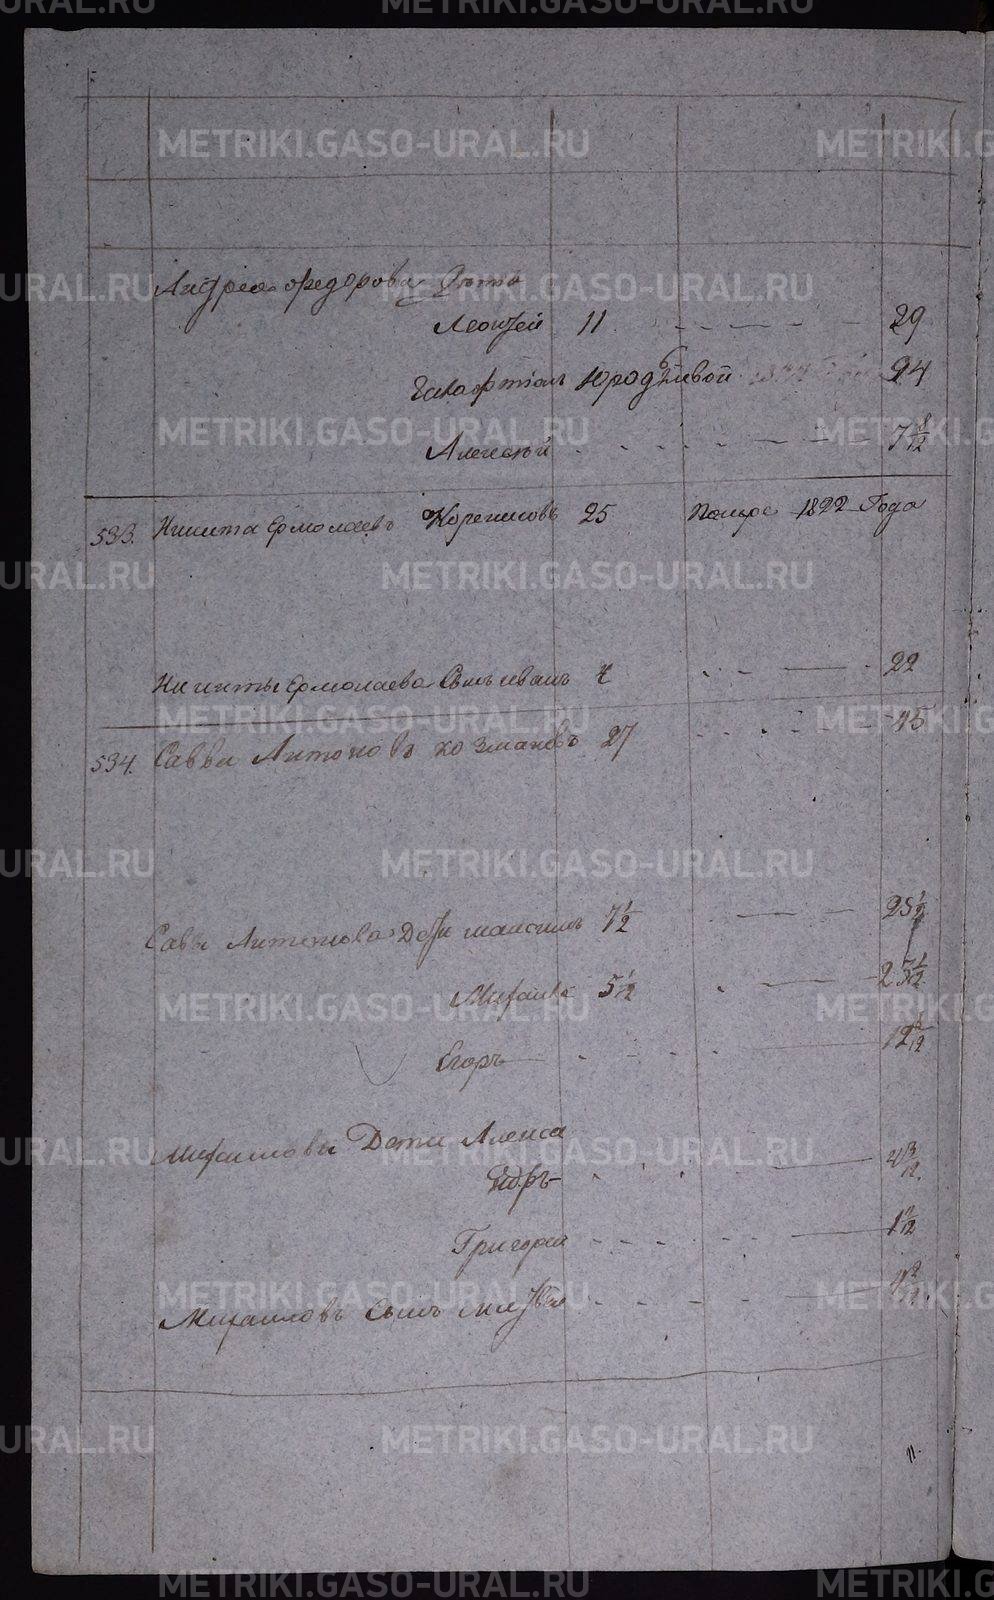 METRIKI.GASO-URAL.RU
Андрея Федорова Дѣти
Леонтей 11 29
Галафтіонъ Юродѣливой 6 24
Алексѣй 7 8/12
533. Никита Ермолаевъ Корепиовъ 25 Помре 1822 Года
Никиты Ермолаева Сынъ иванъ 4 22
534. Савва Антоновъ козмановъ 27 45
Савы Антонова Дѣти максимъ 7 1/2 25 1/2
Михаила 5 1/2 23 1/2
Егоръ 12 6/12
Михаиловы Дети Алекса
Григорей 1 2/12
Михаиловъ Сынъ
11.